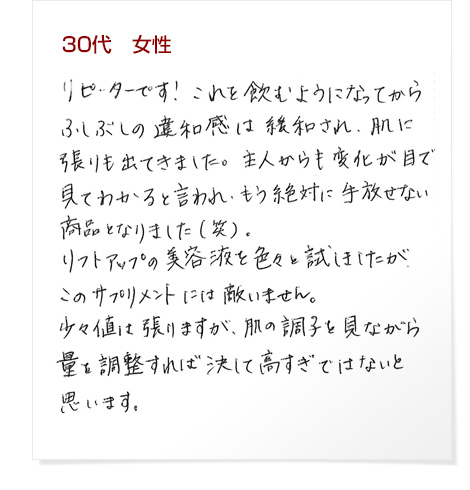 30代　女性
リピーターです！これを飲むようになってから
ふしぶしの違和感は緩和され、肌に
張りも出てきました。主人からも変化が目で
見てわかると言われ、もう絶対に手放せない
商品となりました（笑）。
リフトアップの美容液を色々と試しましたが、
このサプリメントには敵いません。
少々値は張りますが、肌の調子を見ながら
量を調整すれば決して高すぎではないと
思います。